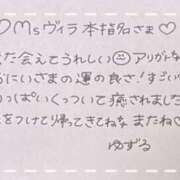 ♡Msヴィラ 本指名さま♡
た会えてうれしい☺アリガトな
おにいさまの運の良さ!すごい
っぱいくっついて癒されました
をつけて帰ってきてねな またね♡
ゆずる